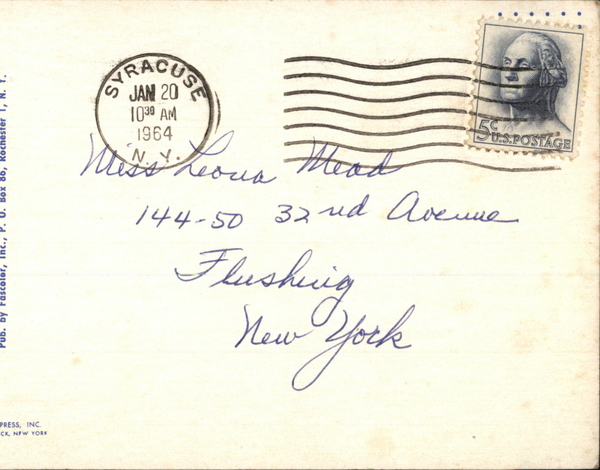 SYRACUSE
JAN 20
10³⁰ AM
1964
N. Y.
5¢
U.S. POSTAGE
Miss Leona Mead
144-50 32nd Avenue
Flushing
New York
Pub. by Fascolor, Inc., P. O. Box 86, Rochester 1, N. Y.
PRESS, INC.
CK, NEW YORK